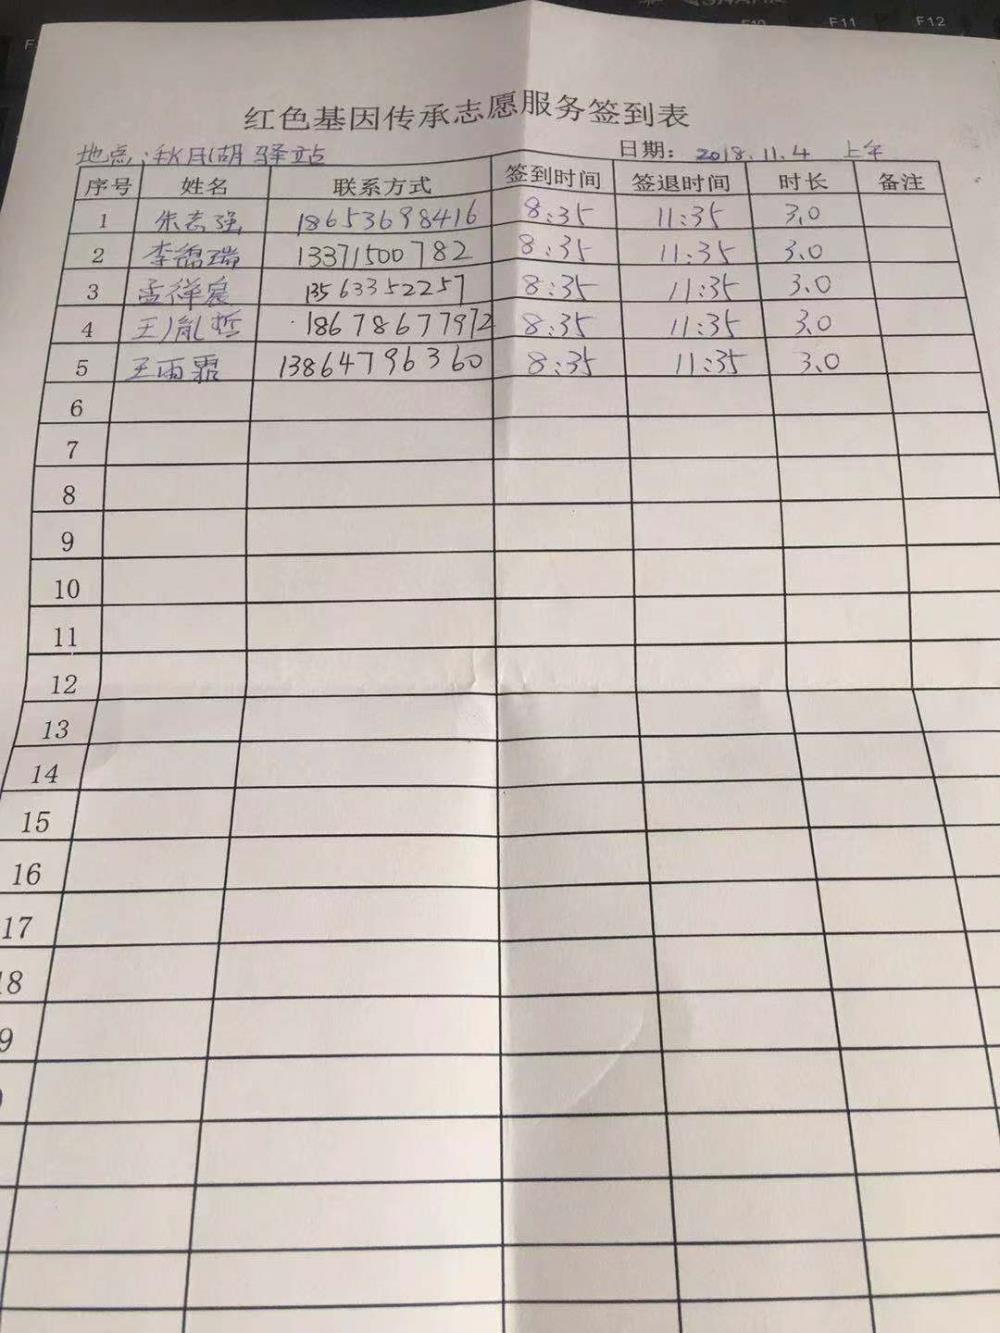 F10 F11 F12
红色基因传承志愿服务签到表
地点:秋月湖驿站 日期: 2018.11.4 上午
序号 姓名 联系方式 签到时间 签退时间 时长 备注
1 朱志强 18653698416 8:35 11:35 3.0
2 李锦瑞 13371500782 8:35 11:35 3.0
3 孟祥宸 13563352257 8:35 11:35 3.0
4 王胤哲 18678677972 8:35 11:35 3.0
5 王雨霏 13864796360 8:35 11:35 3.0
6
7
8
9
10
11
12
13
14
15
16
17
18
9